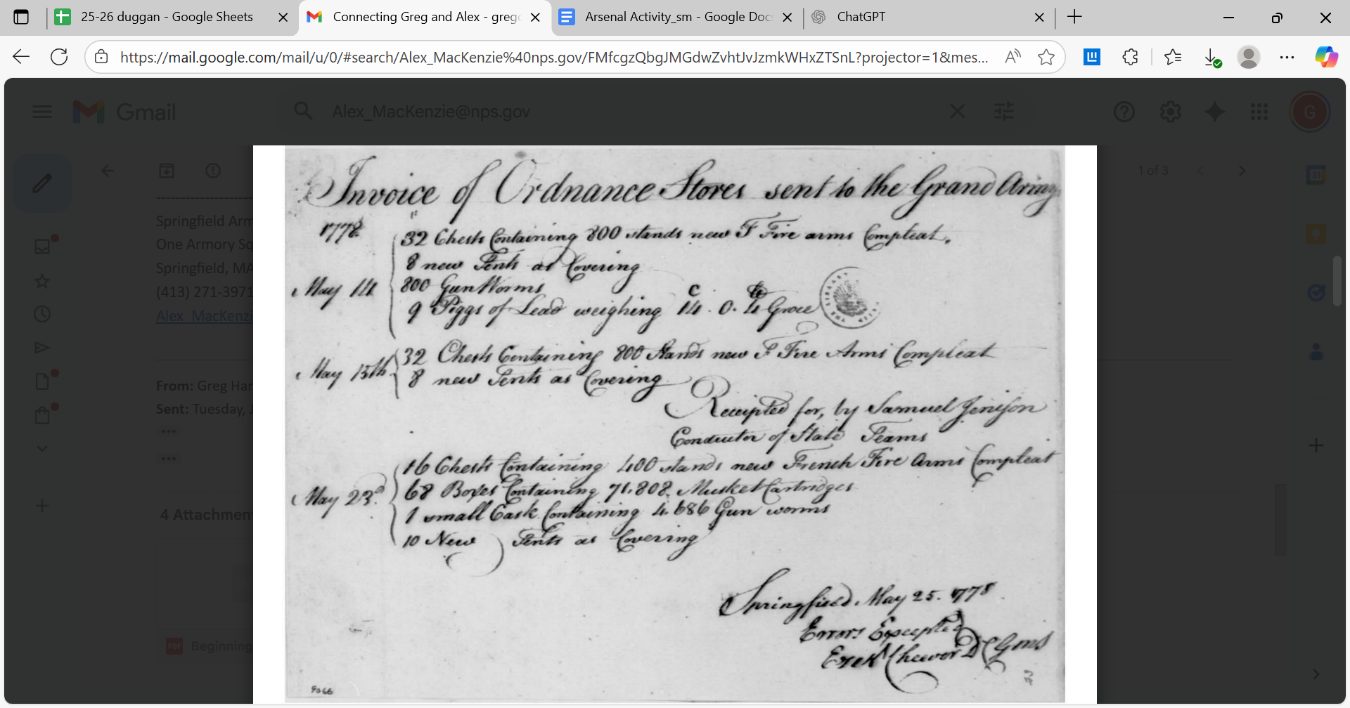 25-26 duggan - Google Sheets
Connecting Greg and Alex - grego
Arsenal Activity_sm - Google Doc
ChatGPT
https://mail.google.com/mail/u/0/#search/Alex_MacKenzie%40nps.gov/FMfcgzQbgJMGdwZvhtJvJzmkWHxZTSnL?projector=1&mes...
Gmail
Alex_MacKenzie@nps.gov
G
1 of 3
Springfield Arm
One Armory Sq
Springfield, MA
(413) 271-3971
Alex_MacKenzi
From: Greg Har
Sent: Tuesday, J
4 Attachmen
Beginning
Invoice of Ordnance Stores sent to the Grand Army
1778
32 Chests Containing 800 stands new F Fire arms Compleat.
8 new Tents as Covering
May 14
800 Gun Worms
9 Piggs of Lead weighing 14 . 0. 4 Groce
May 15th
32 Chests Containing 800 Stands new F Fire Arms Compleat
8 new Tents as Covering
Receipted for, by Samuel Jenison
Conductor of State Teams
16 Chests Containing 400 stands new French Fire Arms Compleat
May 23d
68 Boxes Containing 71.808. Musket Cartridges
1 small Cask Containing 4.686 Gun worms
10 New Tents as Covering
Springfield May 25. 1778
Errors Excepted
Ezekl Cheever D C Gms
9066